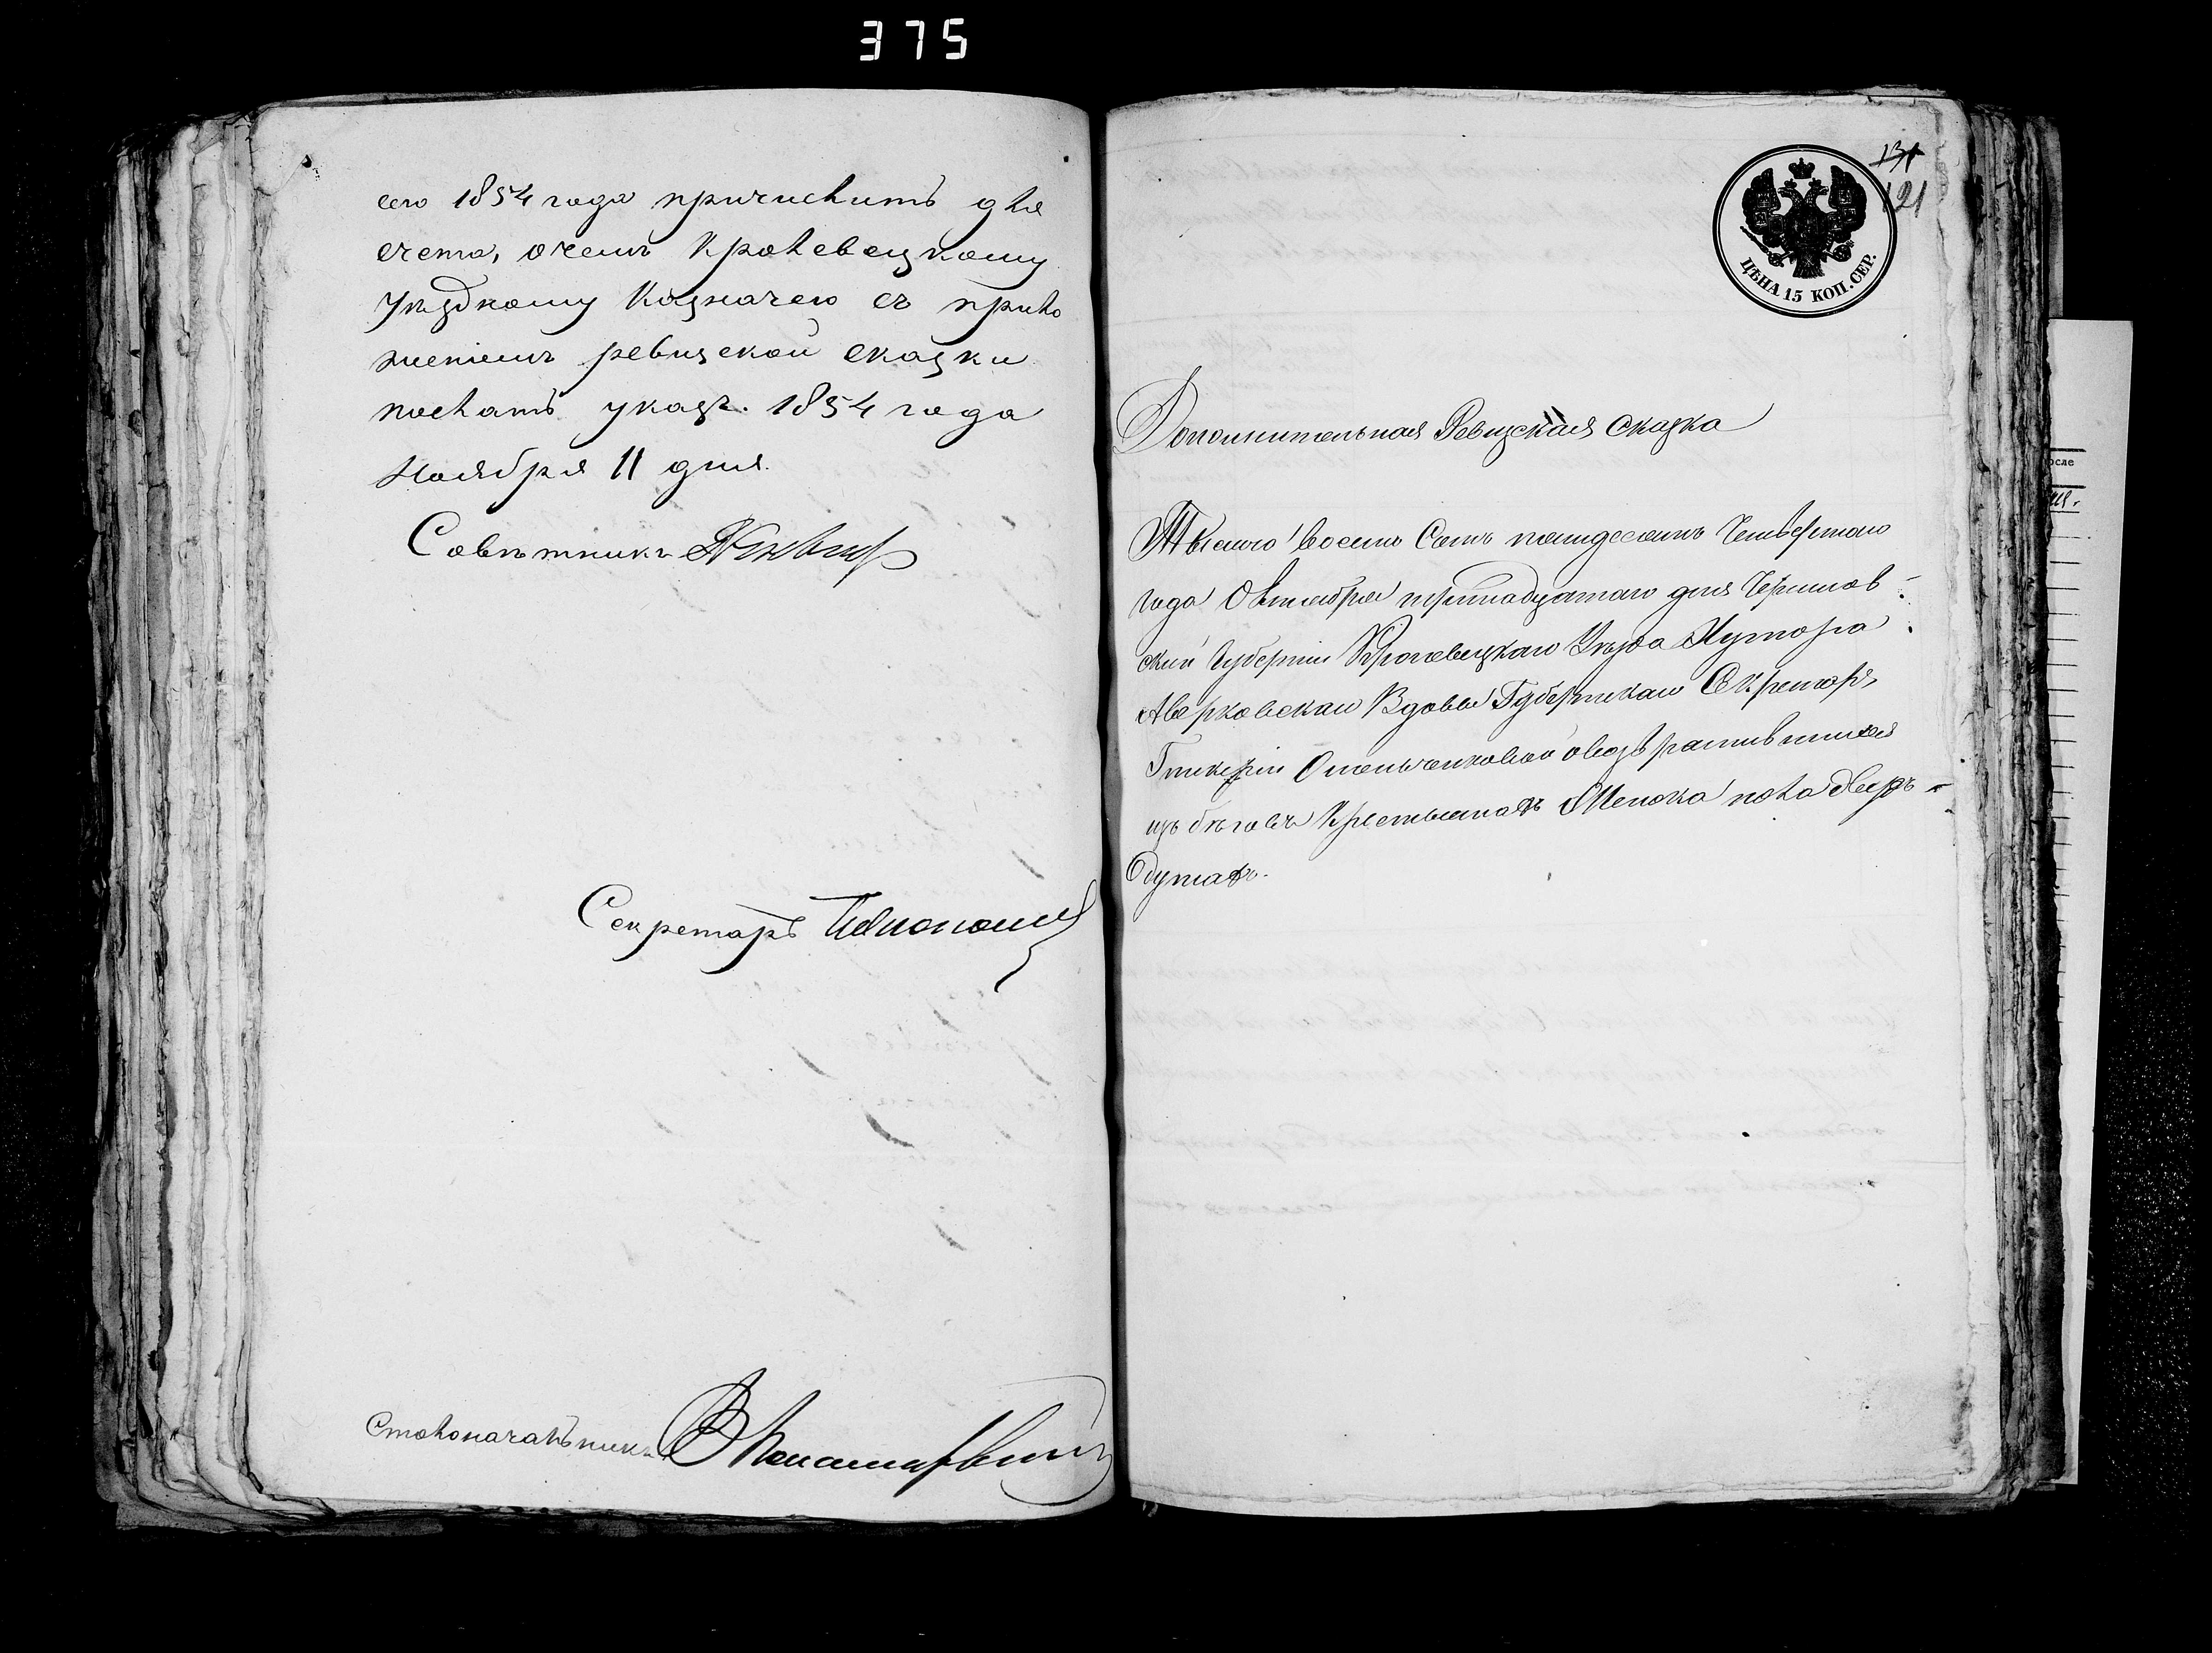 375
сего 1854 года причислить для
счета, о чемъ Кролевецкому
Уѣздному Казначею съ прило
женіемъ ревизской сказки
послать указъ. 1854 года
Ноября 11 дня.
Совѣтникъ
Секретарь
Столоначальникъ
131
121
ЦѢНА 15 КОП. СЕР.
Дополнительная Ревизская сказка
Тысяча восемь Сотъ пятдесятъ Четвертаго
года Октября тринадцатаго дня Чернигов-
ской Губерніи Кролевецкаго Уѣзда Хутора
Аверковскаго Вдовы Губернскаго Секретаря
Гликеріи Омельченковой о возвратившихся
изъ бѣговъ Крестьянахъ мужеска пола двухъ
душахъ.
осле